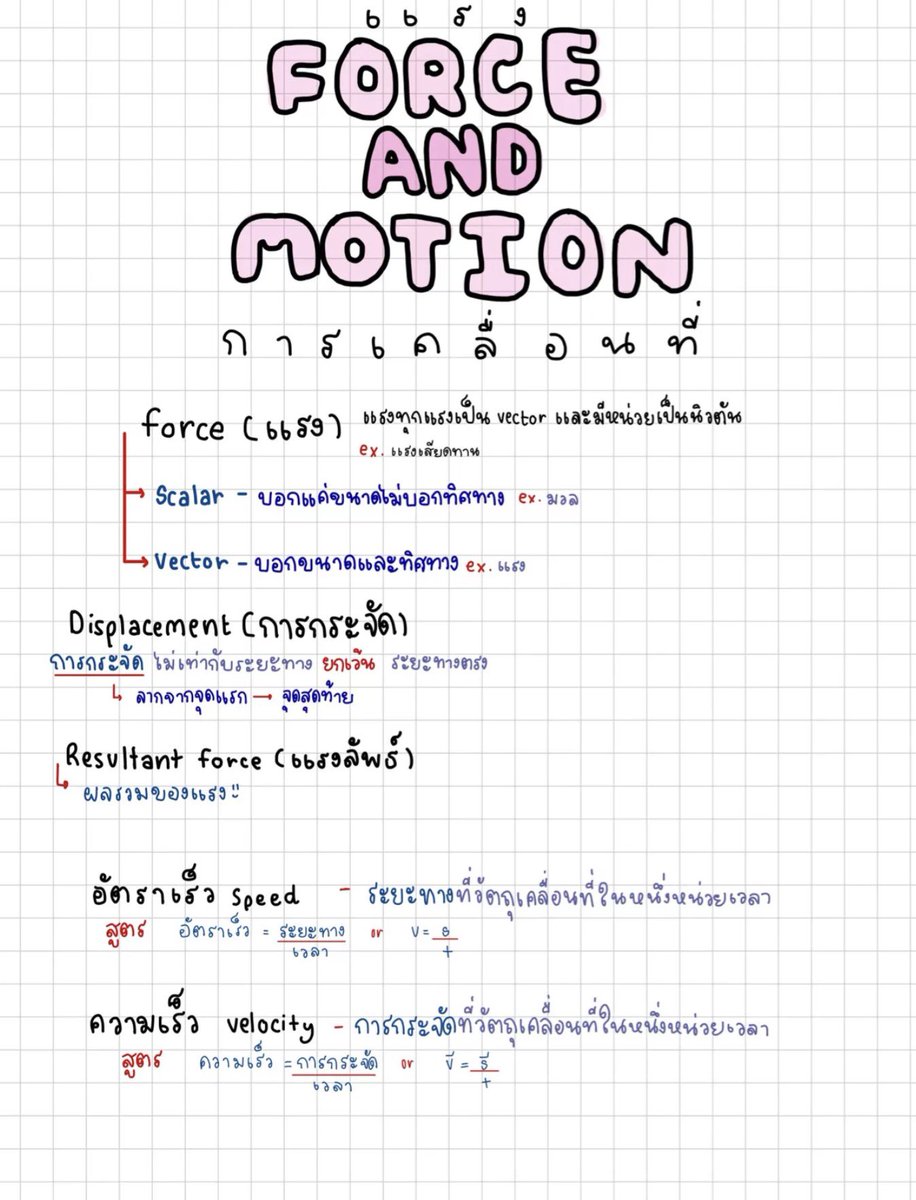 แรง
FORCE
AND
MOTION
การเคลื่อนที่
force (แรง) แรงทุกแรงเป็น vector และมีหน่วยเป็นนิวตัน
ex. แรงเสียดทาน
Scalar - บอกแค่ขนาดไม่บอกทิศทาง ex. มวล
Vector - บอกขนาดและทิศทาง ex. แรง
Displacement (การกระจัด)
การกระจัด ไม่เท่ากับระยะทาง ยกเว้น ระยะทางตรง
↳ ลากจากจุดแรก → จุดสุดท้าย
Resultant force (แรงลัพธ์)
↳ ผลรวมของแรง
อัตราเร็ว speed - ระยะทางที่วัตถุเคลื่อนที่ในหนึ่งหน่วยเวลา
สูตร อัตราเร็ว = ระยะทาง or v = s
เวลา t
ความเร็ว velocity - การกระจัดที่วัตถุเคลื่อนที่ในหนึ่งหน่วยเวลา
สูตร ความเร็ว = การกระจัด or v̄ = s̄
เวลา t